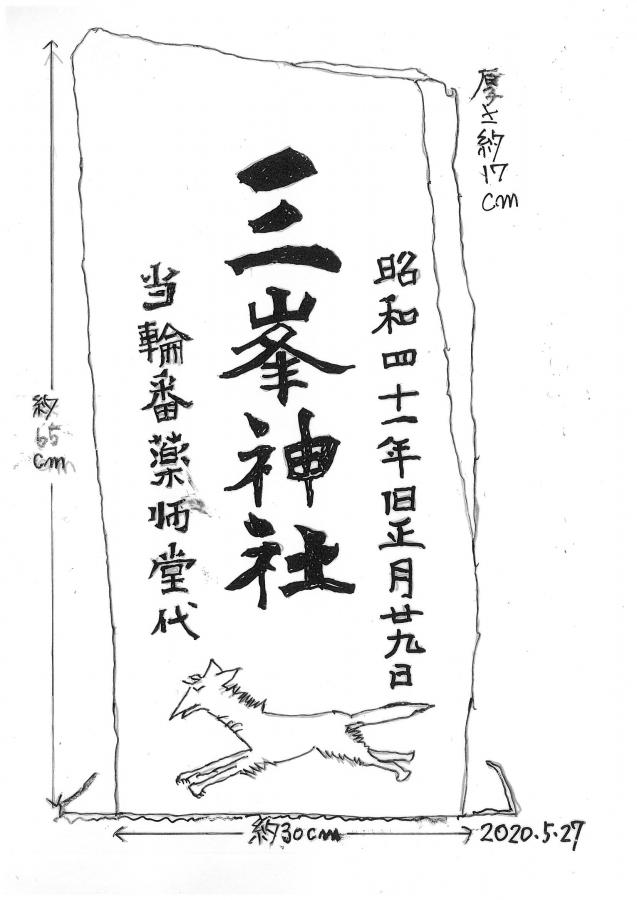 厚さ約17cm
昭和四十一年旧正月廿九日
三峯神社
当輪番薬師堂代
約65cm
約30cm
2020.5.27